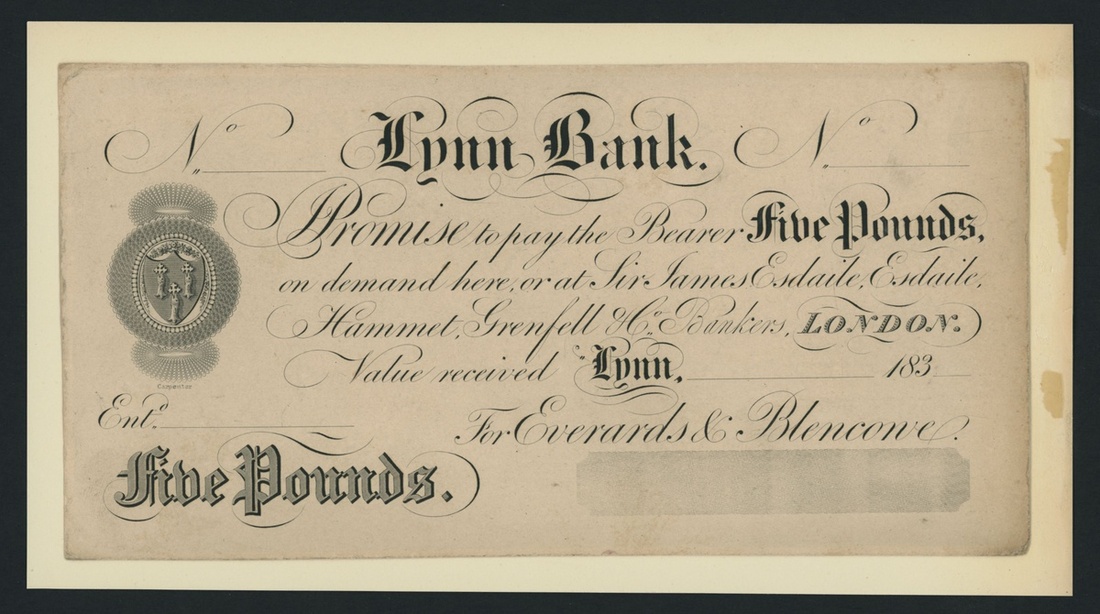 No. Lynn Bank. No.
I Promise to pay the Bearer Five Pounds,
on demand here, or at Sir James Esdaile, Esdaile,
Hammet, Grenfell & Co. Bankers, LONDON.
Value received Lynn, 183
Carpenter
Entd.
For Everards & Blencowe.
Five Pounds.